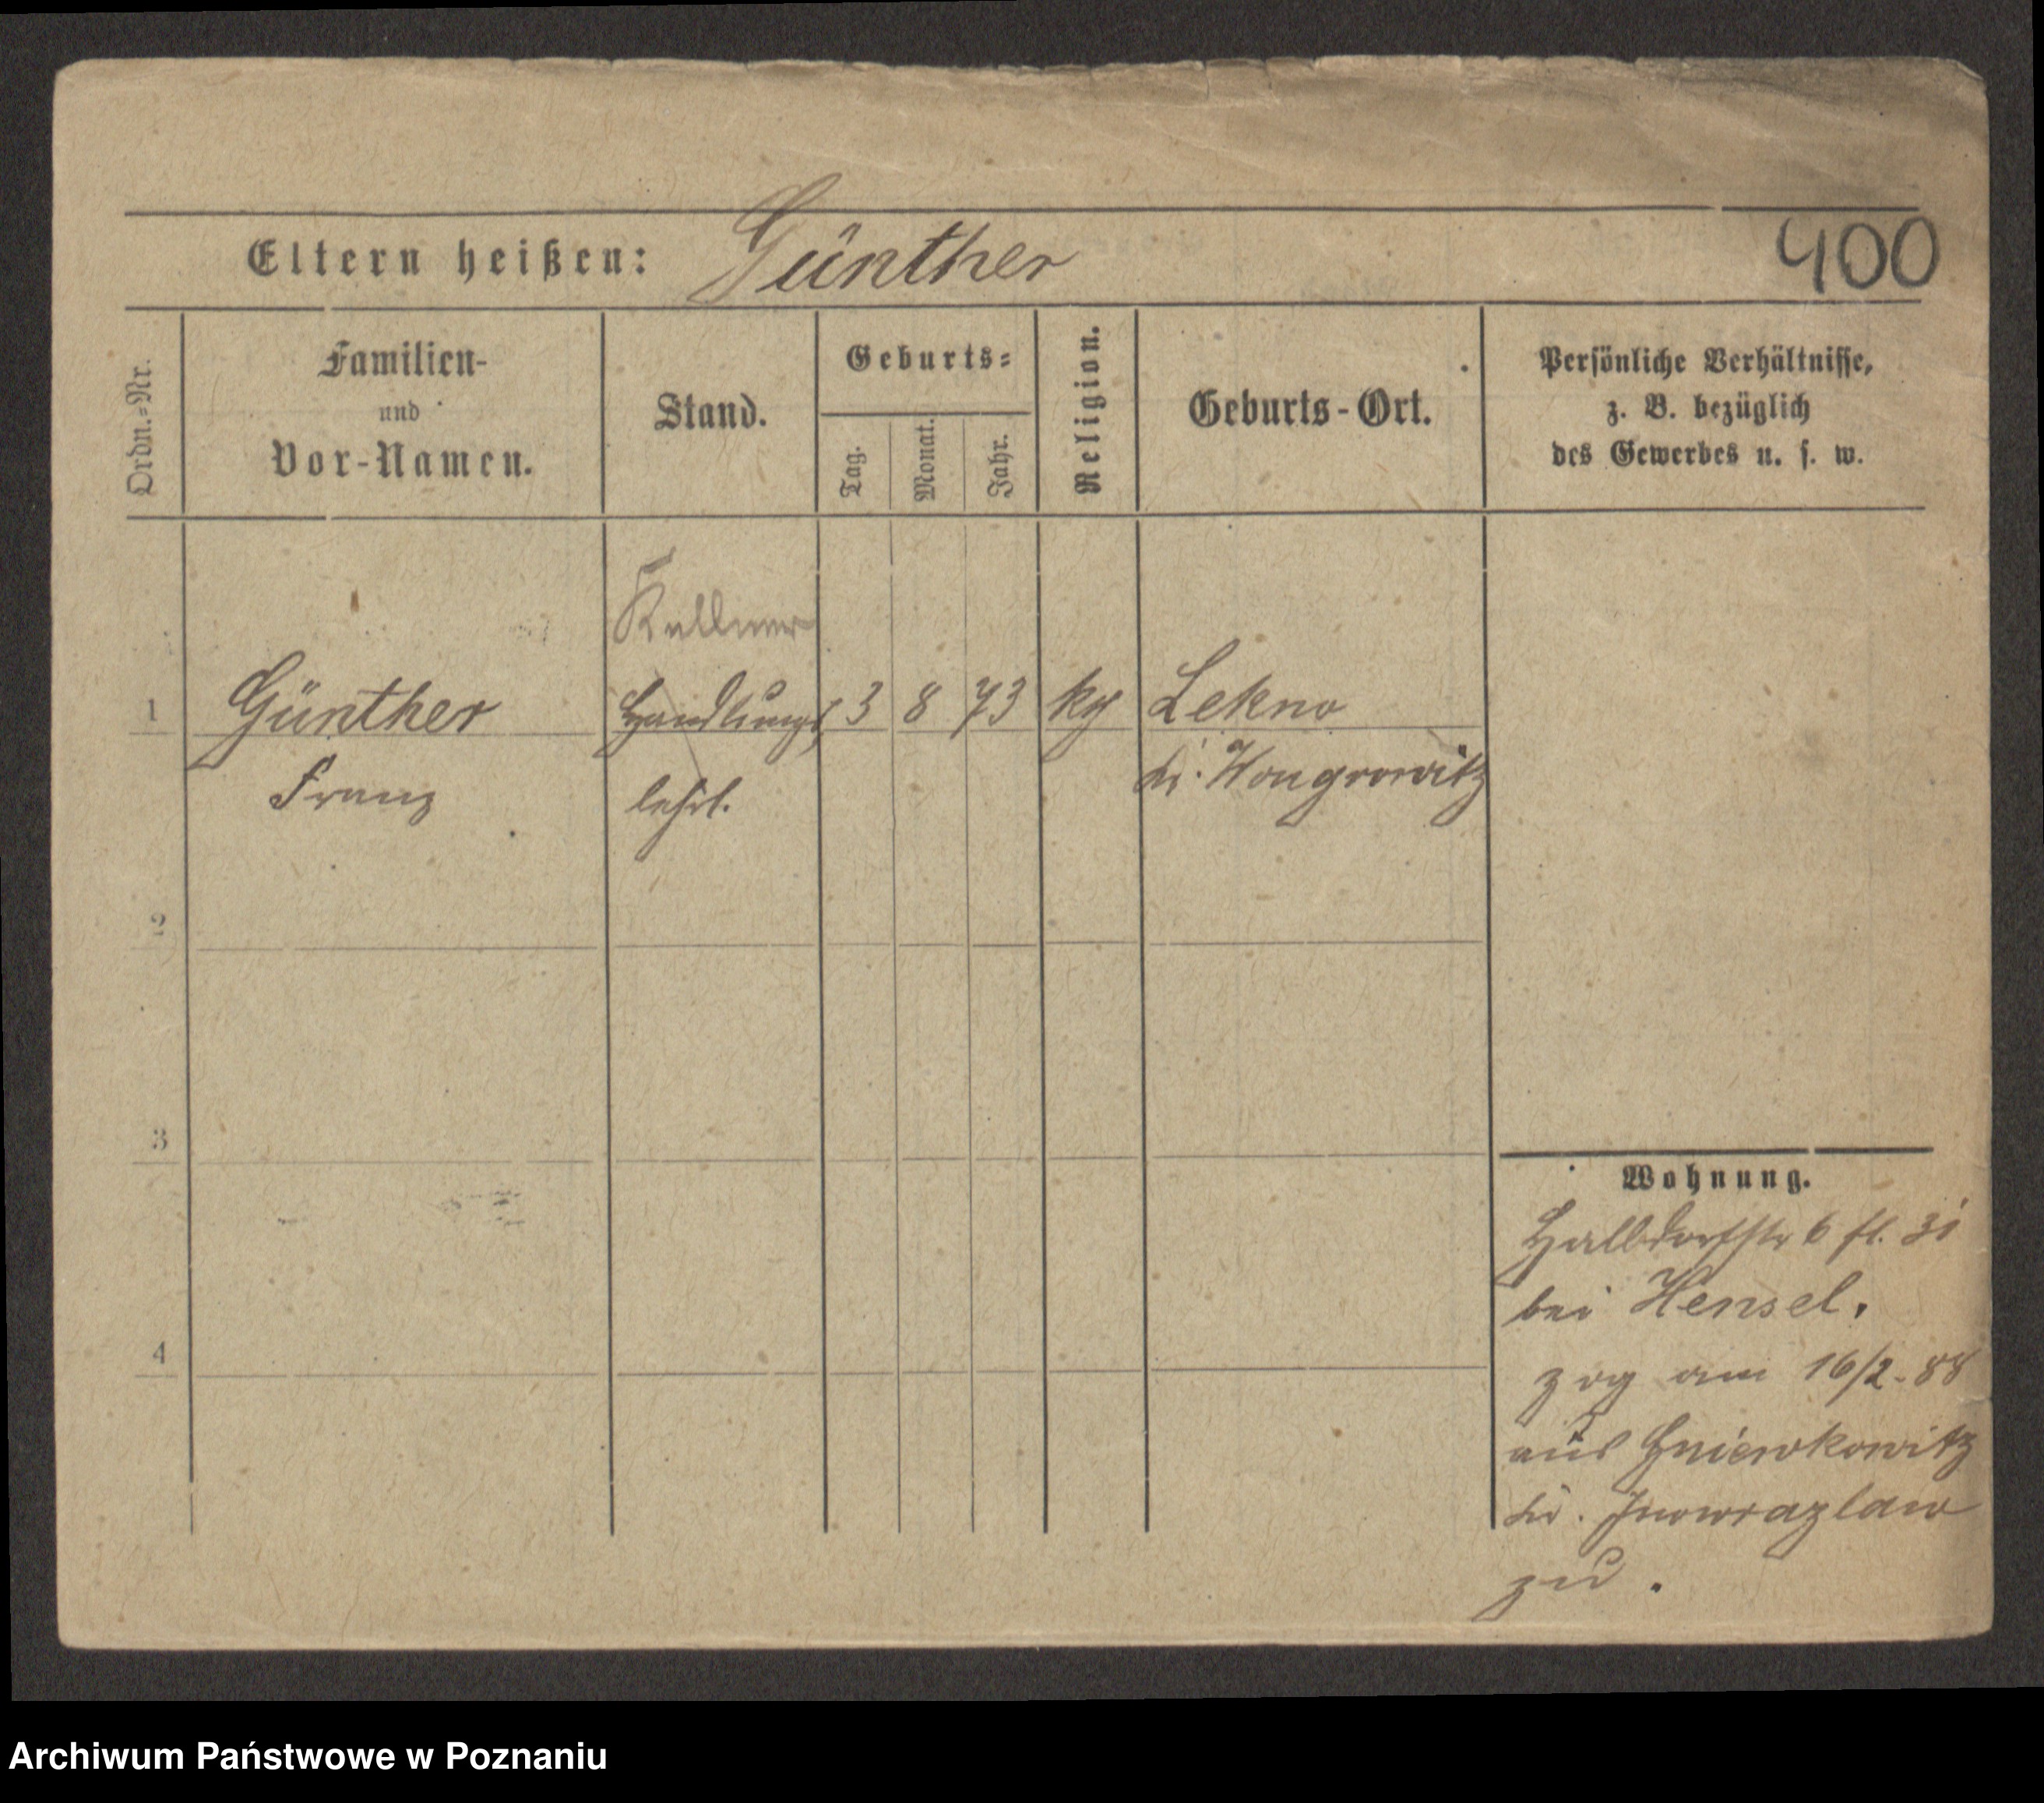 Eltern heißen: Günther
400
Ordn.-Nr.
Familien-
und
Vor-Namen.
Stand.
Geburts-
Tag.
Monat.
Jahr.
Religion.
Geburts-Ort.
Persönliche Verhältnisse,
z. B. bezüglich
des Gewerbes u. s. w.
Kellner
1 Günther Handlungs 3 8 73 Lekno
Franz lehrl. Kr. Wongrowitz
2
3
4
Wohnung.
Halbdorfstr 6
bei Hensel.
zog am 16/2-88
aus Gniewkowitz
Kr. Inowrazlaw
zu.
Archiwum Państwowe w Poznaniu